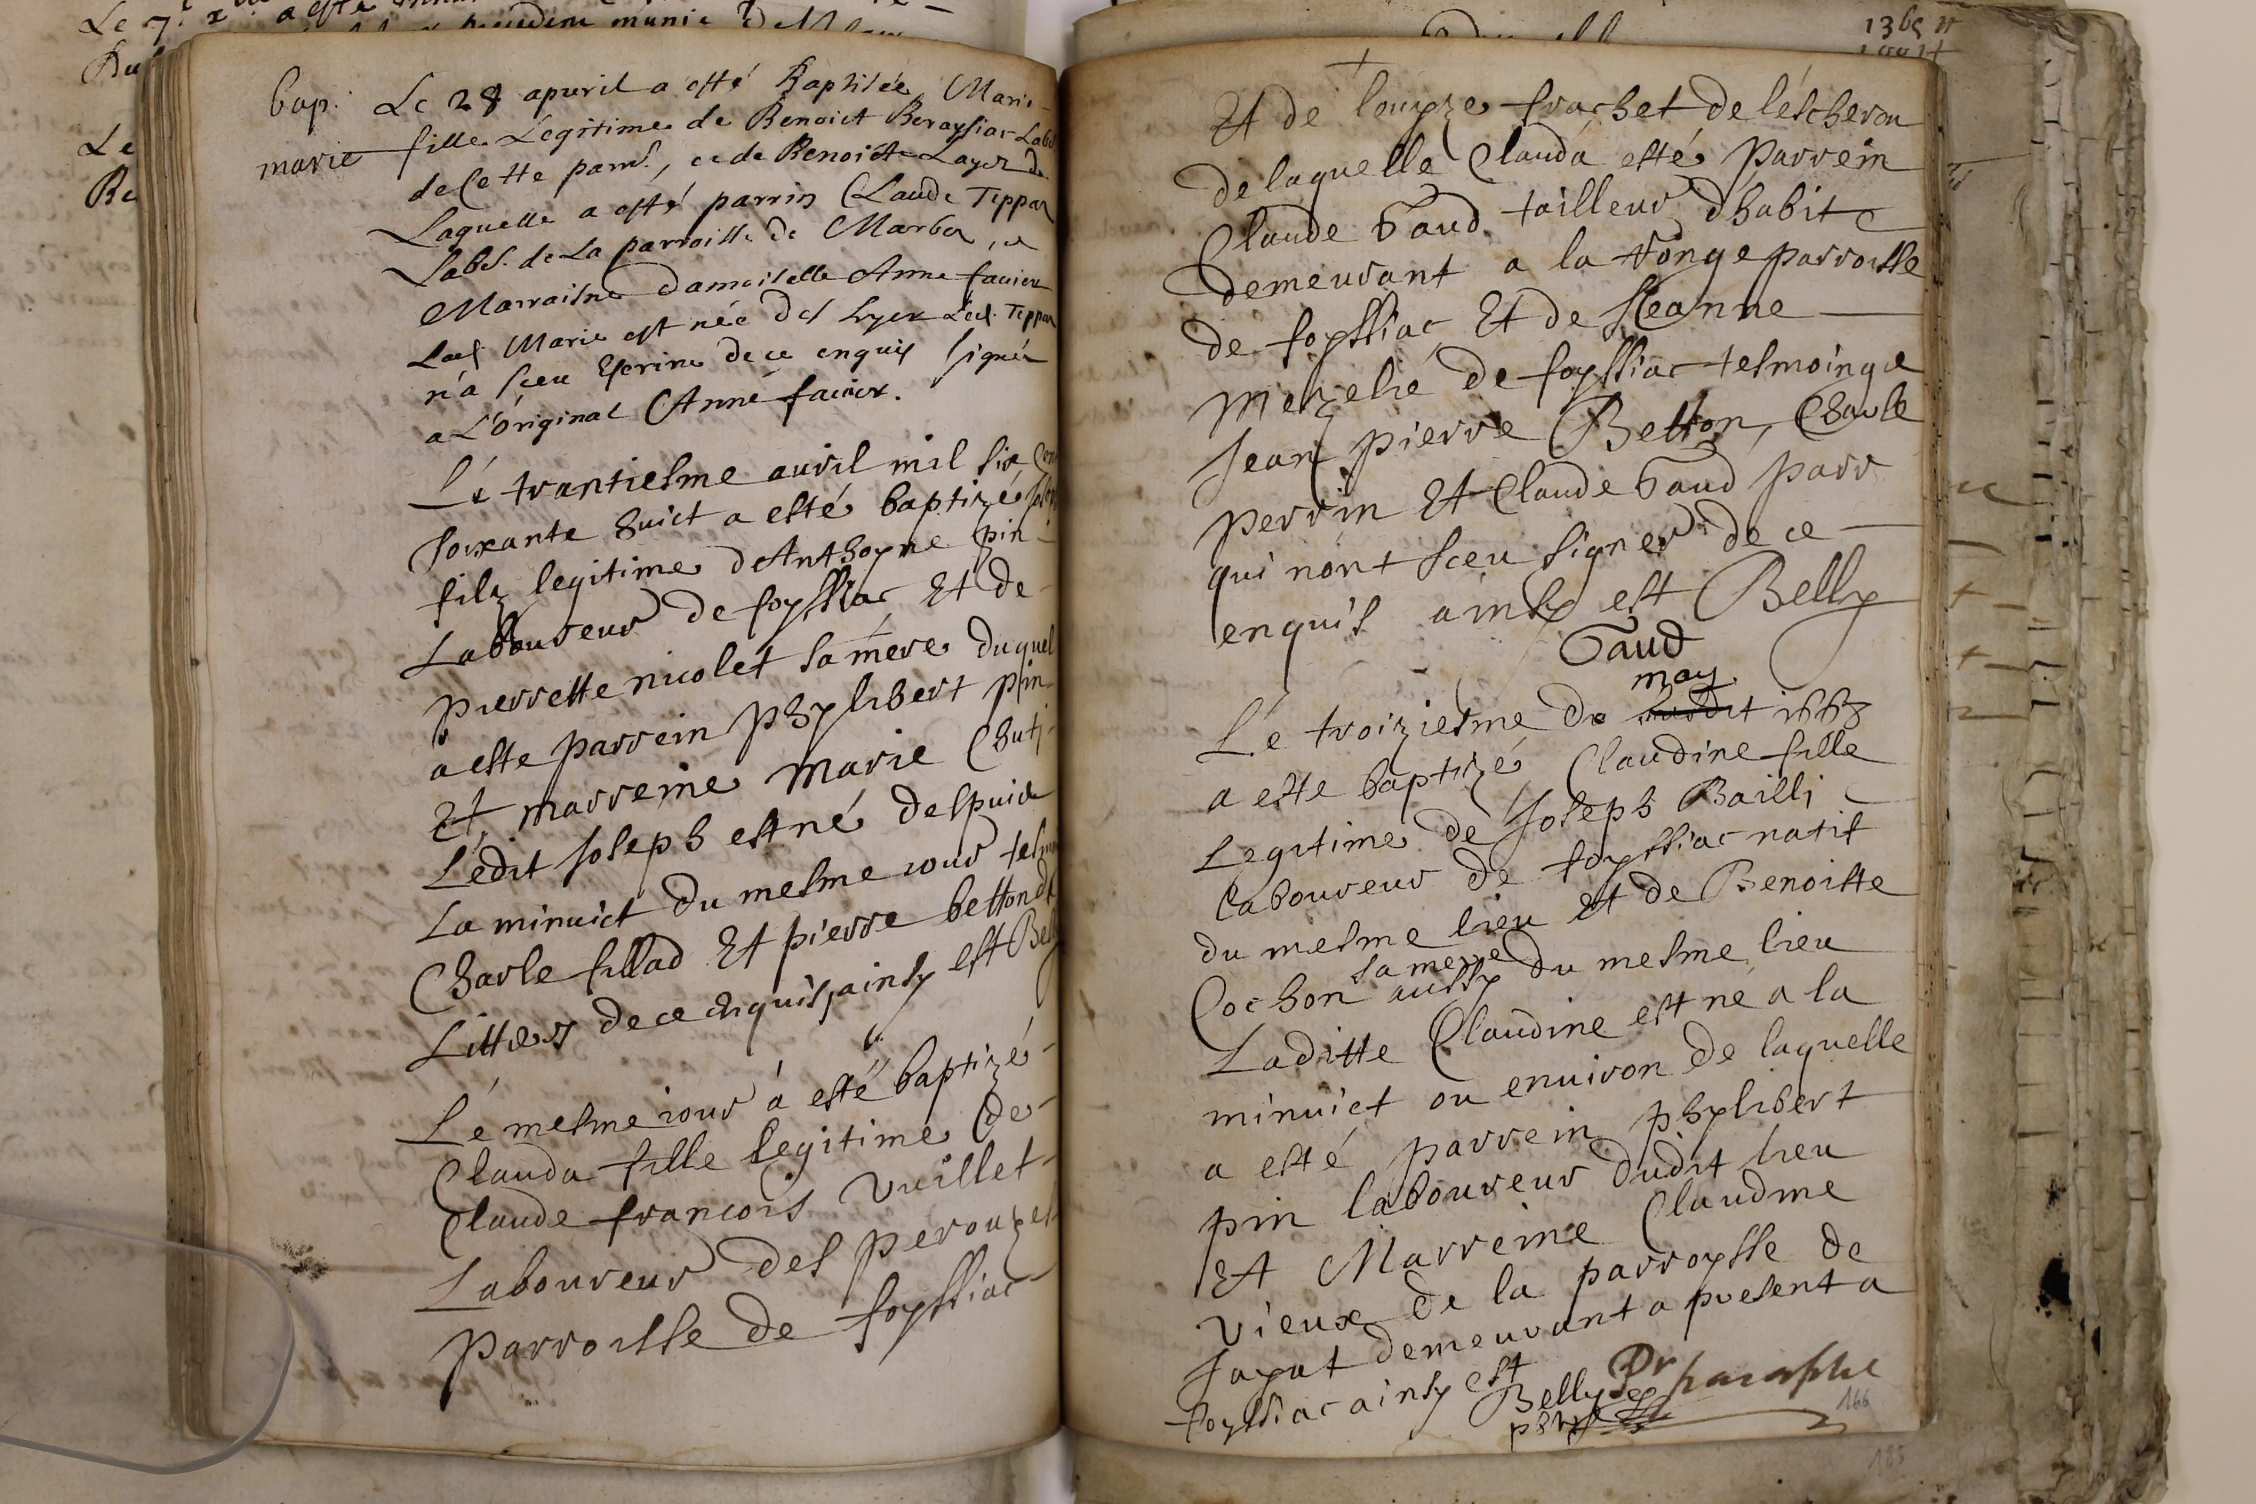 bap.
marie
Le 28 apuril a esté Baptisée Marie
fille Legitime de Benoict Beraysiac Lab
de Cette parr., et de Benoicte Layer de
Laquelle a esté parrin Claude Teppar
Labs. de La parroisse de Marboz, et
Marraisne damoiselle Anne fauier
Lad Marie est née des hyer Led. Teppar
n'a sceu Escrire de ce enquis signée
a L'original Anne fauier.
Le trantiesme auril mil six Cen
soixante huict a esté baptizé
filz legitime d'Anthoyne pin
Laboureur de foyssiac Et de
pierrette nicolet sa mere duquel
a este parrein phylibert pin
Et marreine marie Chuti
Ledit Joseph est né despuis
La minuict du mesme iour tesm
Charle fillad Et pierre betton
Litters de ce enquis, ainsy est Bel
Le mesme iour a esté baptizé
Clauda fille legitime de
Claude francois vuillet
Laboureur des perouzes
parroisse de foyssiac
Et de louyze frachet de lescherou
de laquelle Clauda esté parrein
Claude Gaud tailleur d'habit
demeurant a la ronge parroisse
de foyssiac Et de Jeanne
mezelié de foyssiac tesmoingz
Jean pierre Betton, Charle
perrin Et Claude Gaud parr
qui n'ont sceu signer de ce
enquis ainsy est Belly
Gaud
may
Le troiziesme du 1668
a este baptizé Claudine fille
Legitime de Joseph Bailli
laboureur de foyssiac natif
du mesme lieu Et de Benoitte
sa mere
Cochon aussy du mesme lieu
Laditte Claudine est né a la
minuict ou enuiron de laquelle
a esté parrein phylibert
pin laboureur dudit lieu
Et Marreine Claudine
vieux de la parroysse de
Jayat demeurant a present a
foyssiac ainsy est
Belly
paraphe
166
185